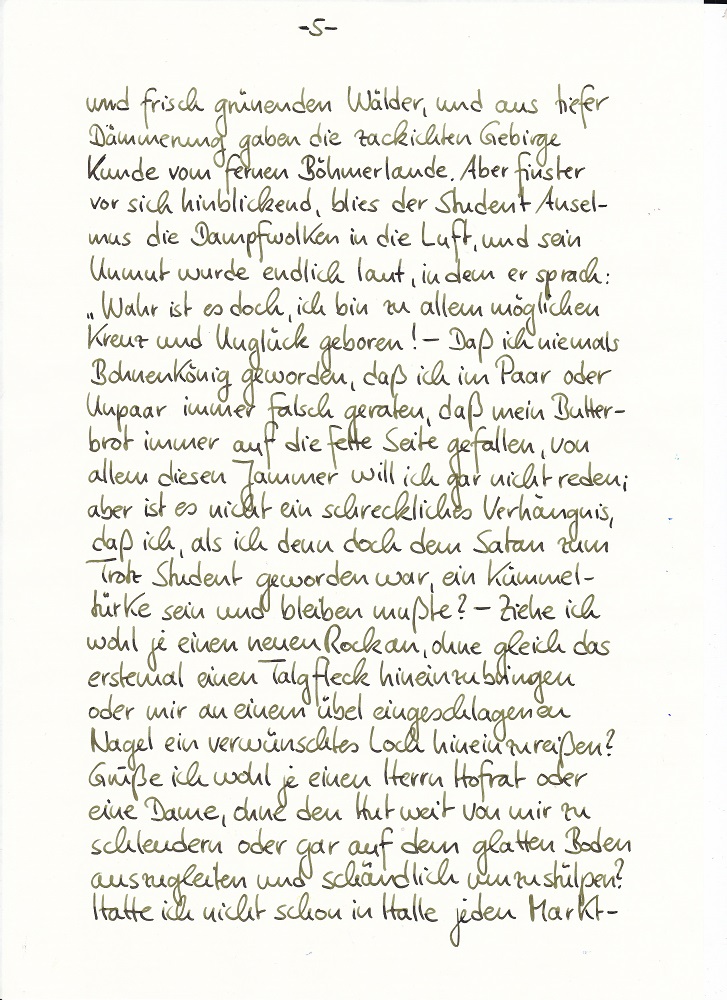 -5-
und frisch grünenden Wälder, und aus tiefer
Dämmerung gaben die zackichten Gebirge
Kunde vom fernen Böhmerlande. Aber finster
vor sich hinblickend, blies der Student Ansel-
mus die Dampfwolken in die Luft, und sein
Unmut wurde endlich laut, indem er sprach:
„Wahr ist es doch, ich bin zu allem möglichen
Kreuz und Unglück geboren! – Daß ich niemals
Bohnenkönig geworden, daß ich im Paar oder
Unpaar immer falsch geraten, daß mein Butter-
brot immer auf die fette Seite gefallen, von
allem diesen Jammer will ich gar nicht reden;
aber ist es nicht ein schreckliches Verhängnis,
daß ich, als ich denn doch dem Satan zum
Trotz Student geworden war, ein Kümmel-
türke sein und bleiben mußte? – Ziehe ich
wohl je einen neuen Rock an, ohne gleich das
erstemal einen Talgfleck hineinzubringen
oder mir an einem übel eingeschlagenen
Nagel ein verwünschtes Loch hineinzureißen?
Grüße ich wohl je einen Herrn Hofrat oder
eine Dame, ohne den Hut weit von mir zu
schleudern oder gar auf dem glatten Boden
auszugleiten und schändlich umzustülpen?
Hatte ich nicht schon in Halle jeden Markt-